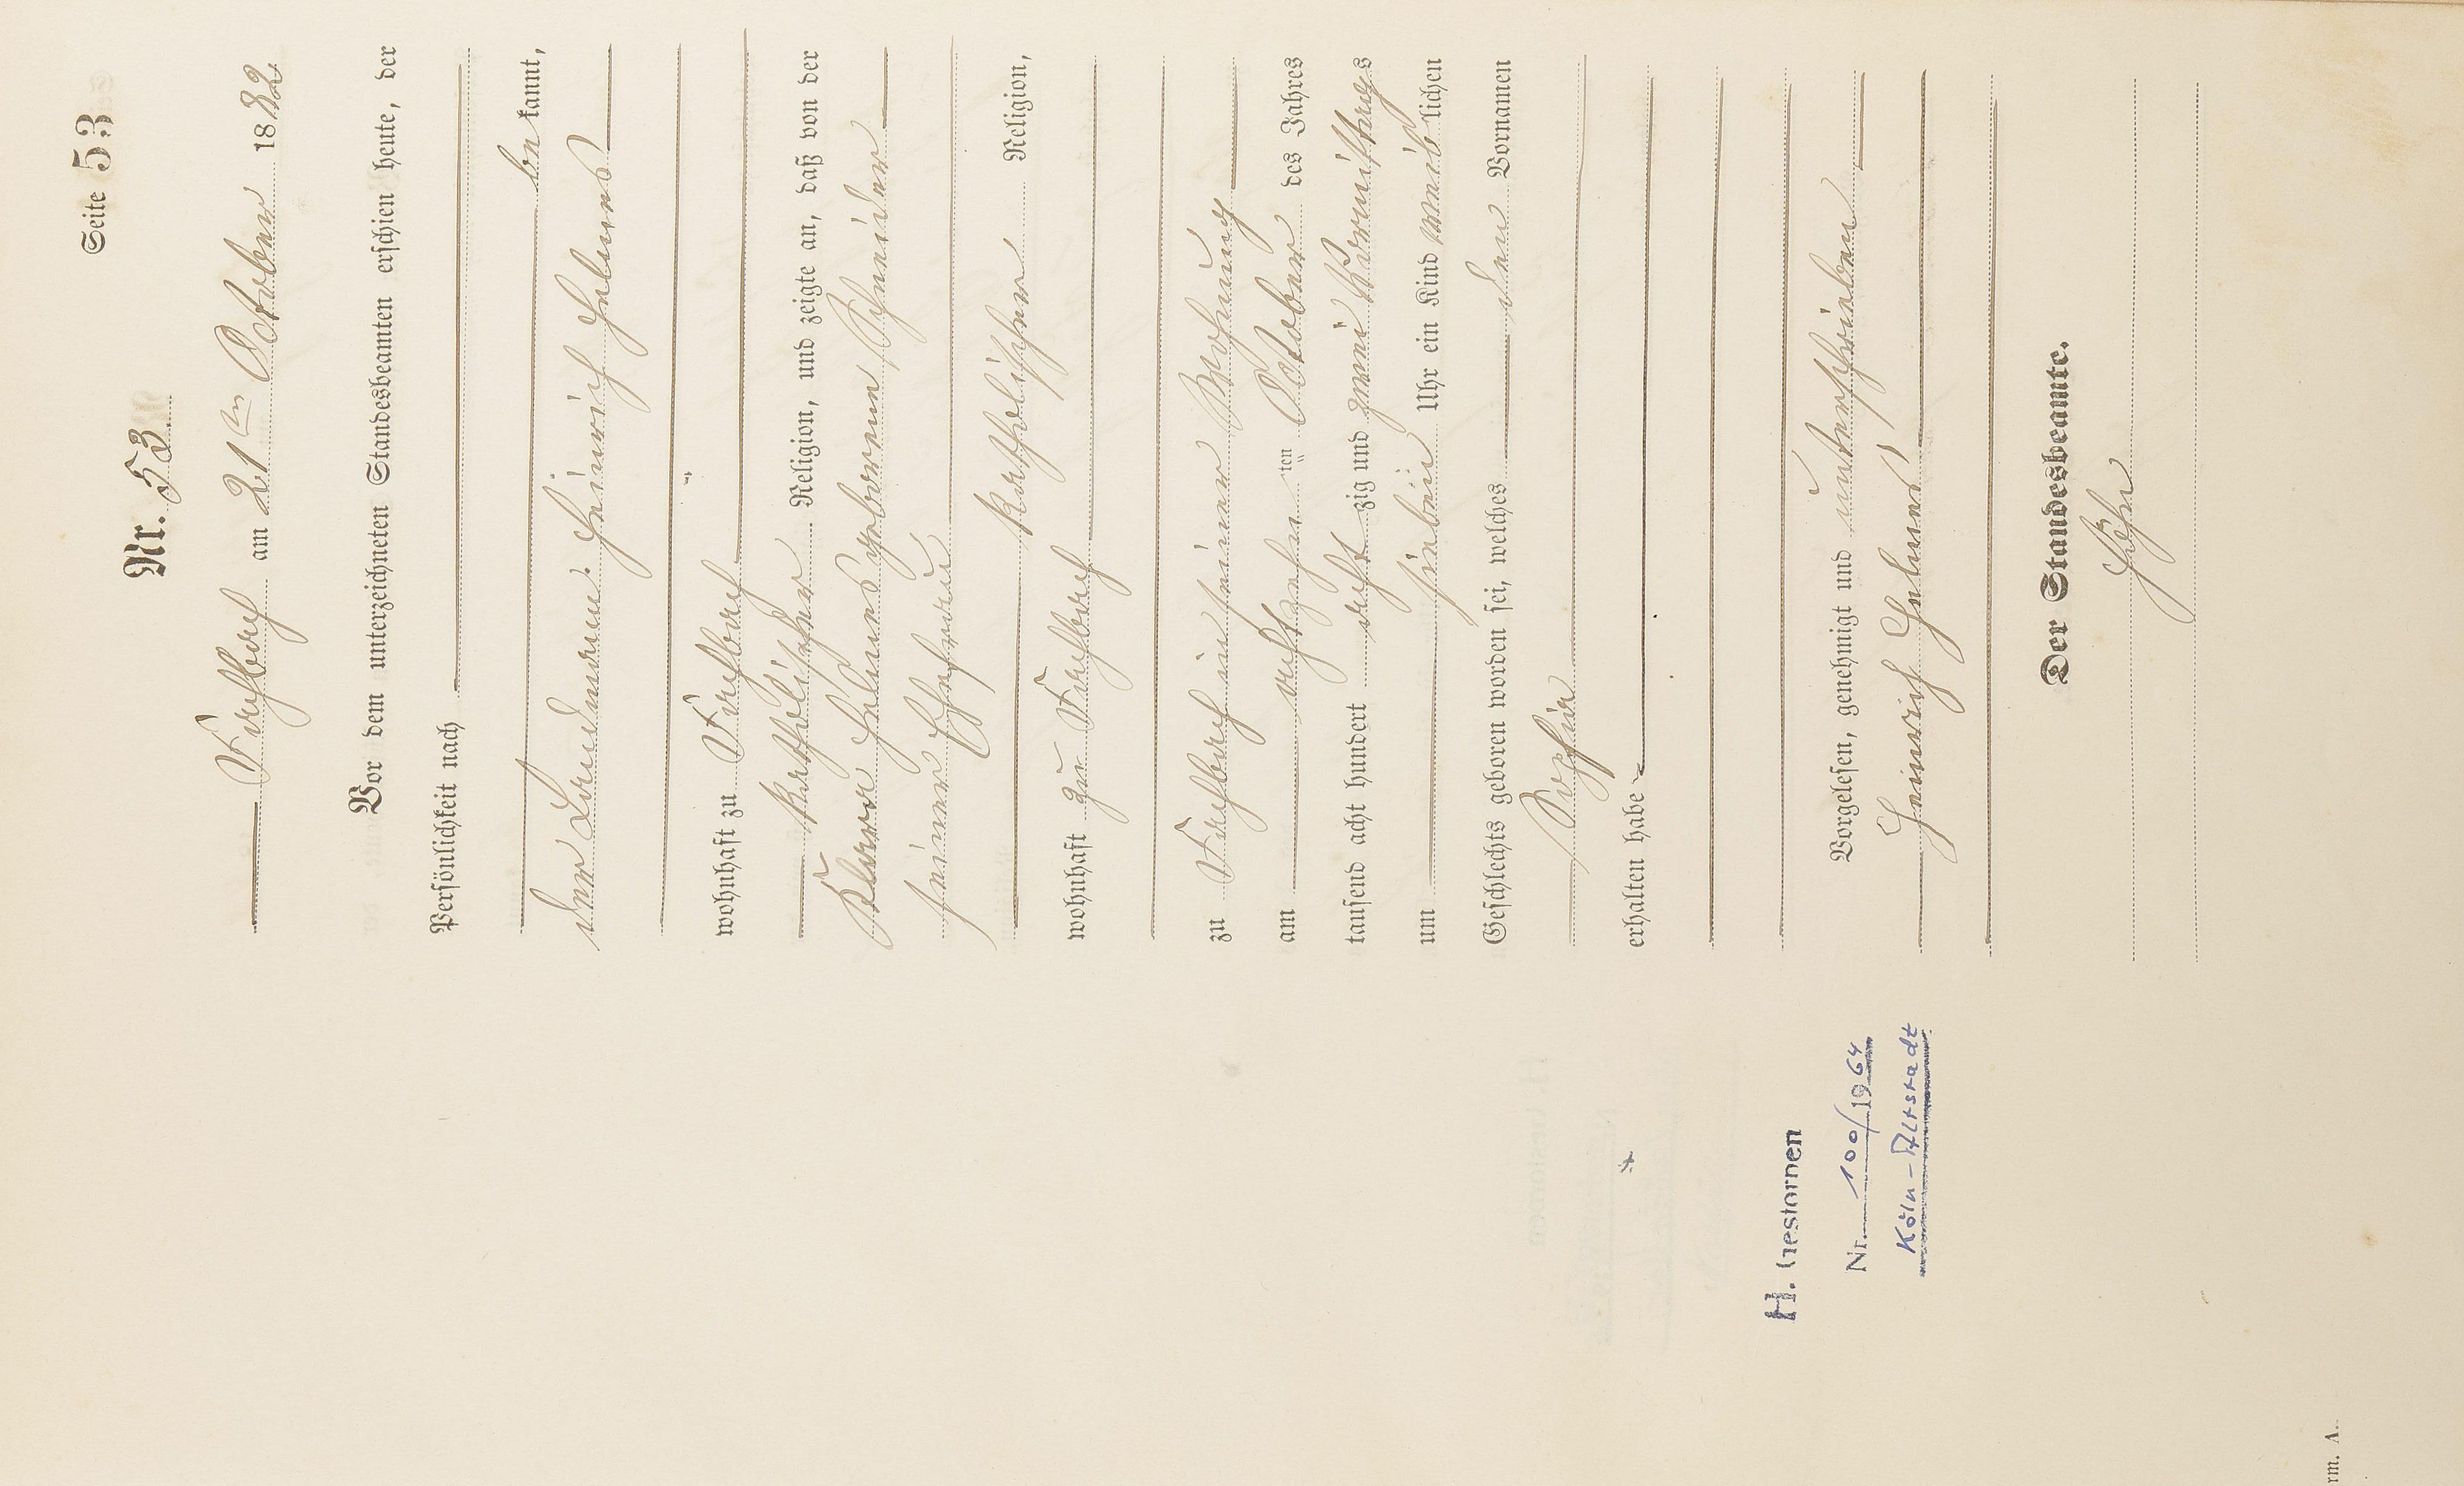 Seite 53
Nr. 53
Fachbach am 21ten October 1882
Vor dem unterzeichneten Standesbeamten erschien heute, der
Persönlichkeit nach
be kannt,
der Landmann. Heinrich Helmes
wohnhaft zu Fachbach
katholischer Religion, und zeigte an, daß von der
Klara Helmes geborenen Schneider
seiner Ehefrau
katholischer Religion,
wohnhaft zu Fachbach
zu Fachbach in seiner Wohnung
am achtzehn ten October des Jahres
tausend acht hundert acht zig und zwei Vormittags
um sieben Uhr ein Kind weib lichen
Geschlechts geboren worden sei, welches den Vornamen
Sophia
erhalten habe
Vorgelesen, genehmigt und unterschrieben
Heinrich Helmes
Der Standesbeamte.
Höhn
H. Gestorben
Nr. 100/1964
Köln-Altstadt
rm. A.